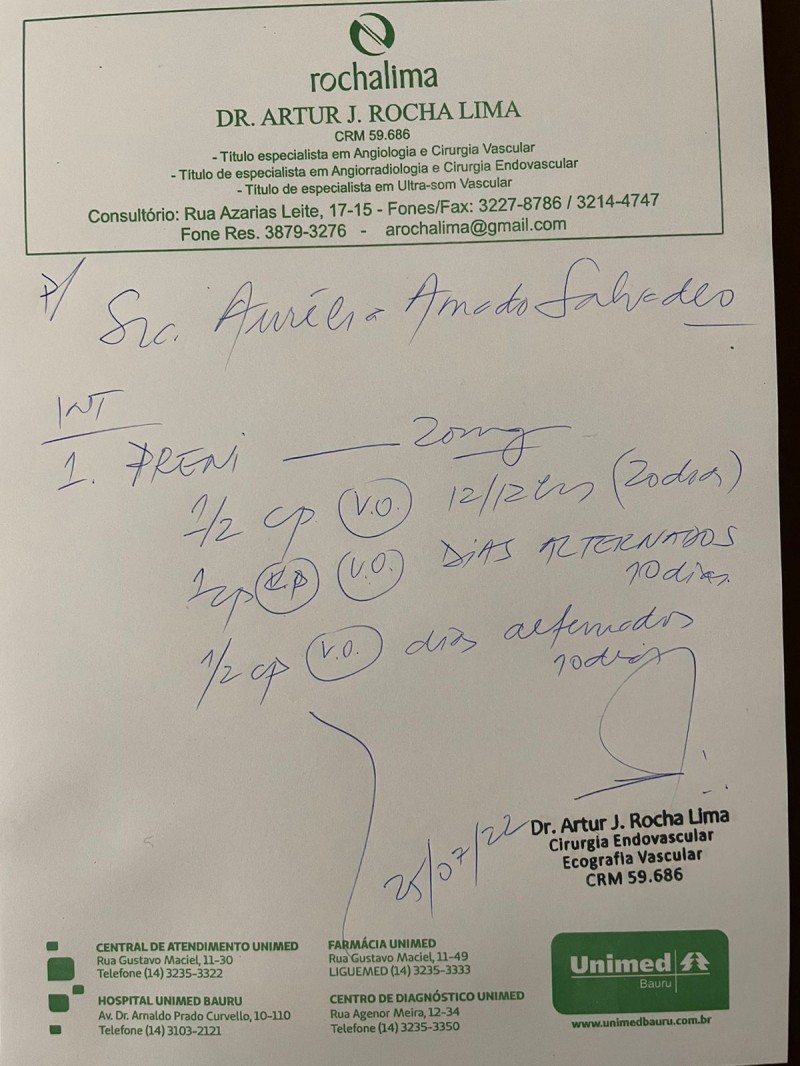 rochalima
DR. ARTUR J. ROCHA LIMA
CRM 59.686
- Título especialista em Angiologia e Cirurgia Vascular
- Título de especialista em Angiorradiologia e Cirurgia Endovascular
- Título de especialista em Ultra-som Vascular
Consultório: Rua Azarias Leite, 17-15 - Fones/Fax: 3227-8786 / 3214-4747
Fone Res. 3879-3276 - arochalima@gmail.com
P/
Sra. Aurélia Amado Salvadeo
INT
1. PRENI — 20mg
1/2 cp V.O. 12/12hs (20dias)
1cp V.O. DIAS ALTERNADOS
10dias
1/2 cp V.O. dias alternados
10dias
25/07/22
Dr. Artur J. Rocha Lima
Cirurgia Endovascular
Ecografia Vascular
CRM 59.686
CENTRAL DE ATENDIMENTO UNIMED
Rua Gustavo Maciel, 11-30
Telefone (14) 3235-3322
HOSPITAL UNIMED BAURU
Av. Dr. Arnaldo Prado Curvello, 10-110
Telefone (14) 3103-2121
FARMÁCIA UNIMED
Rua Gustavo Maciel, 11-49
LIGUEMED (14) 3235-3333
CENTRO DE DIAGNÓSTICO UNIMED
Rua Agenor Meira, 12-34
Telefone (14) 3235-3350
Unimed
Bauru
www.unimedbauru.com.br